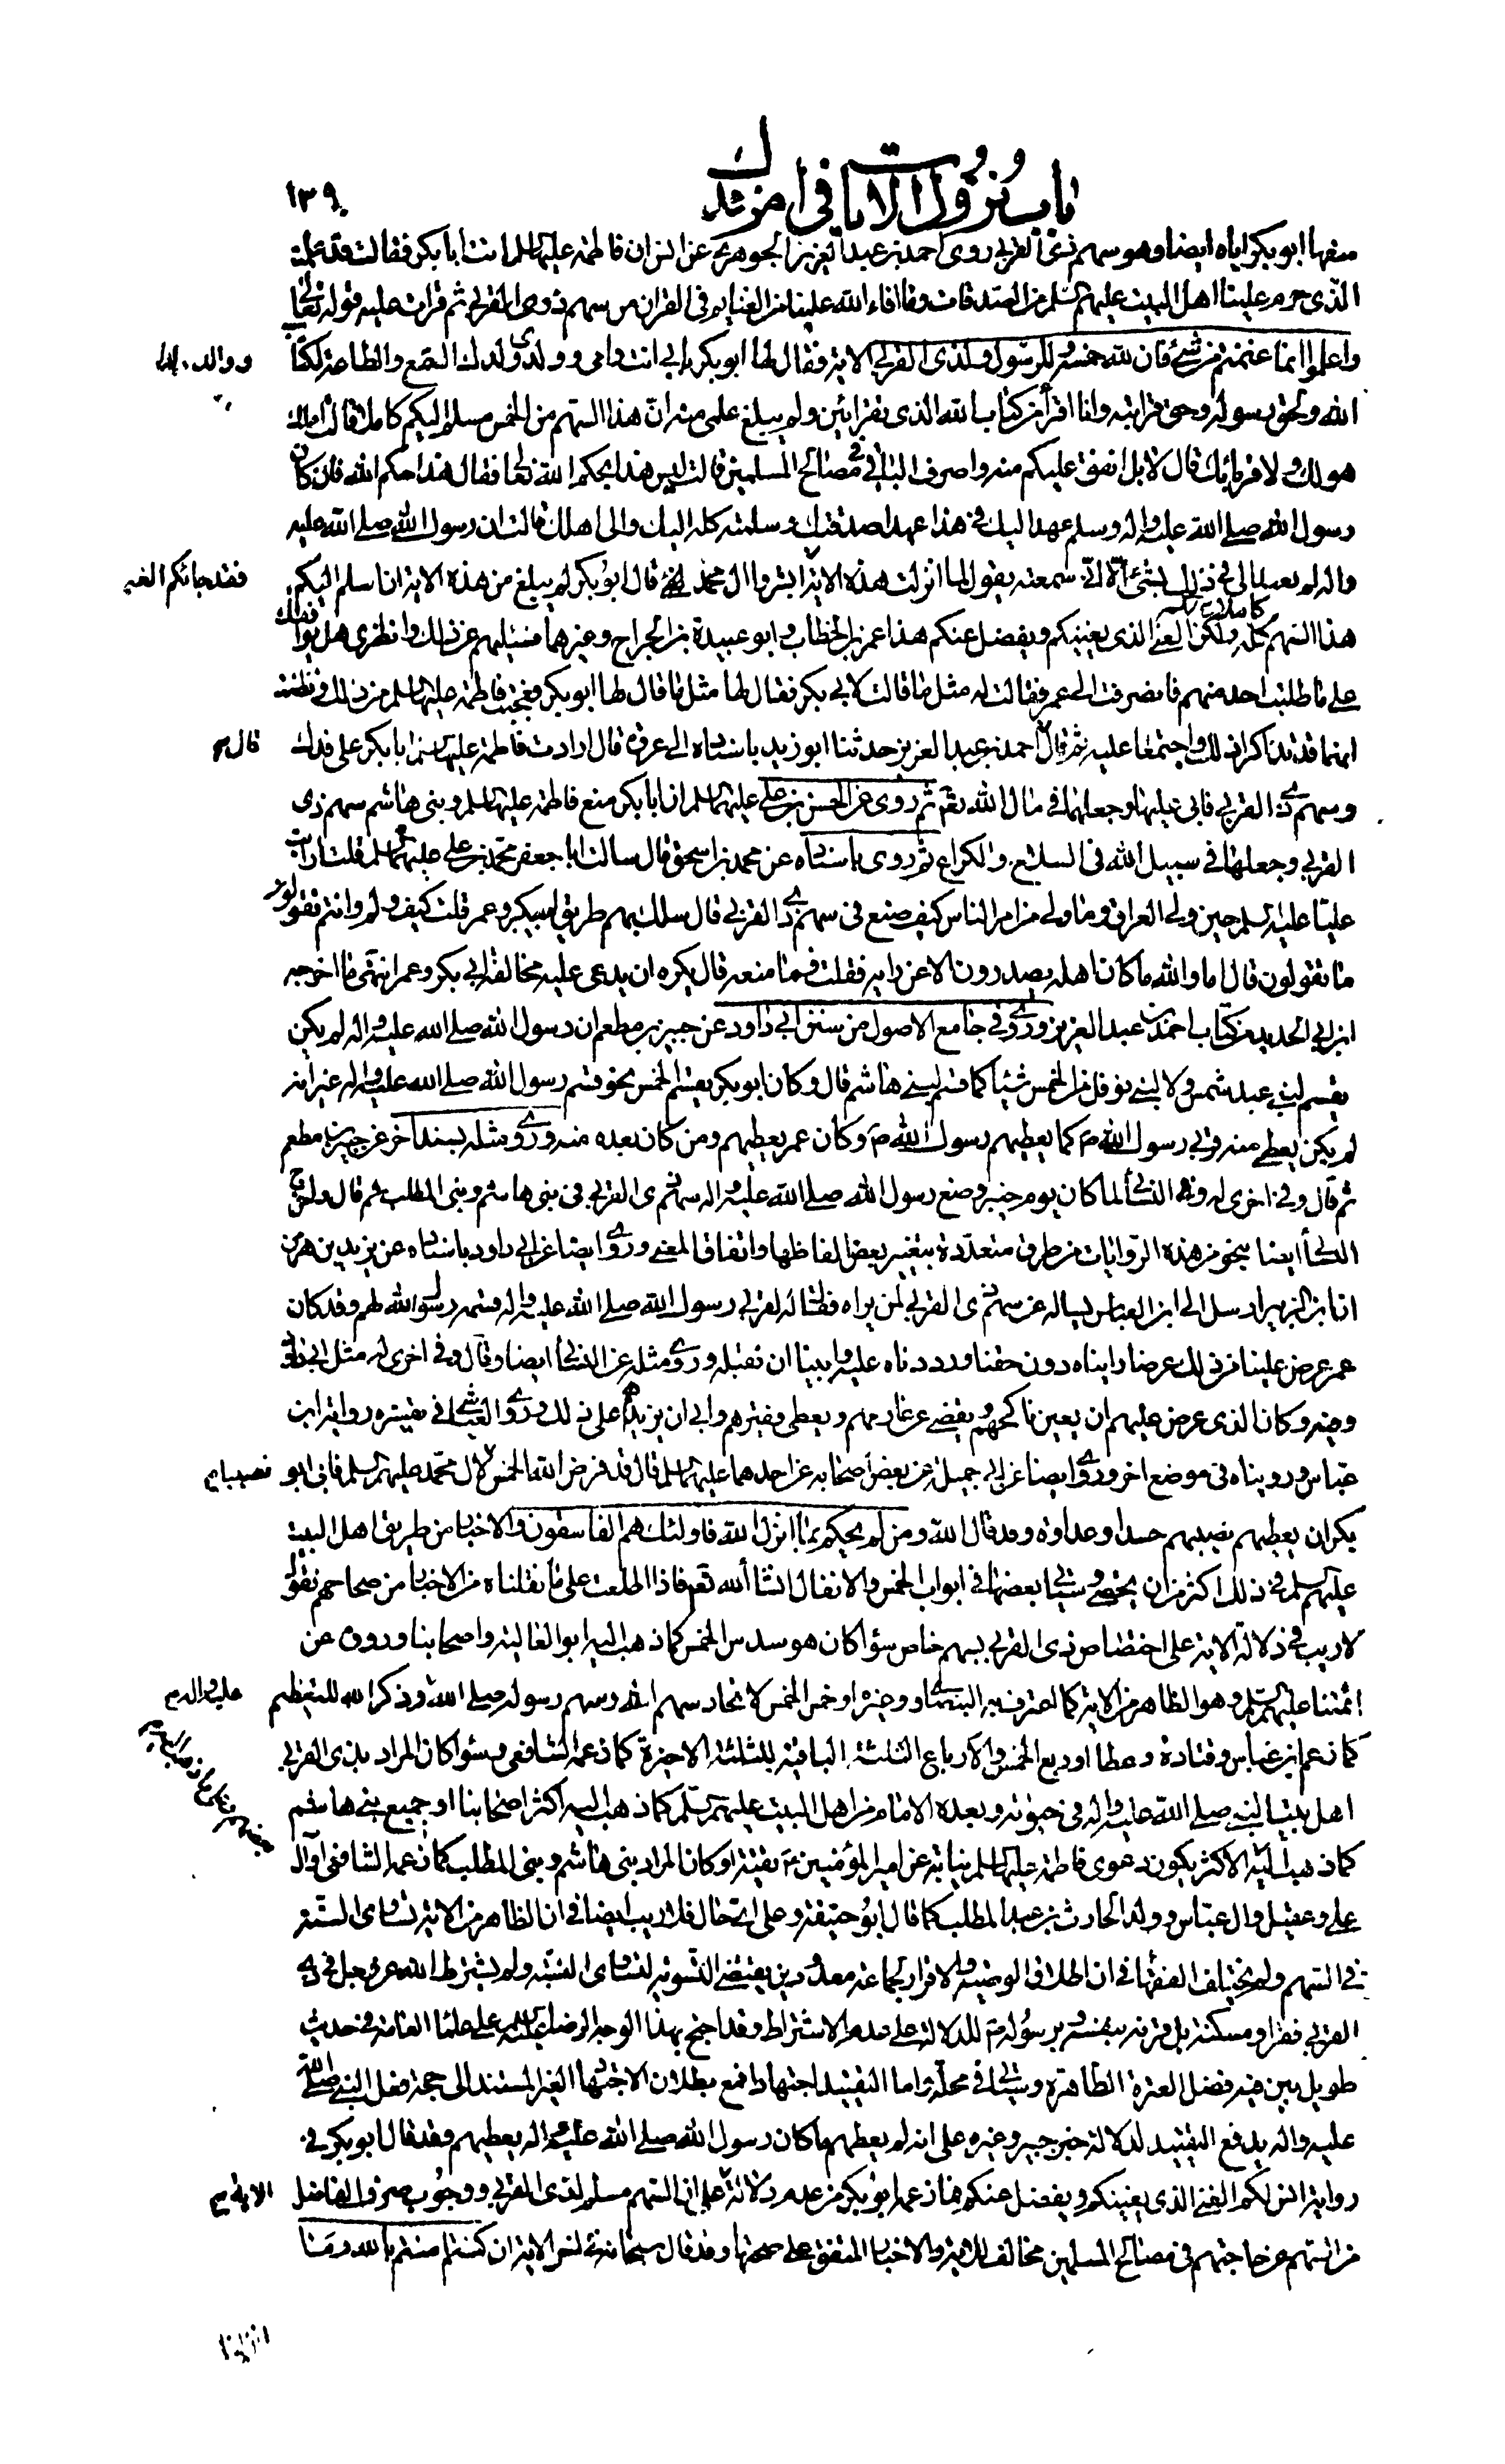 باب نزول الآيات في أمر فدك
١٣٩
منعها ابو بكر اياه ايضا وهو سهم ذي القربى روى احمد بن عبد العزيز الجوهري عن انس ان فاطمة عليها السلم اتت ابا بكر فقالت قد علمت
الذي حرم علينا اهل البيت عليهم السلم من الصدقات وما افاء الله علينا من الغنايم في القران من سهم ذوى القربى ثم قرات عليه قوله تعالى
واعلموا انما غنمتم من شئ فان لله خمسه وللرسول ولذي القربى الاية فقال لها ابو بكر بابي انت وامي ووالد ولدك السمع والطاعة لكتاب
الله ولحق رسوله وحق قرابته وانا اقرأ من كتاب الله الذي تقرأين ولم يبلغ علمي منه ان هذا السهم من الخمس مسلم اليكم كاملا قالت املك
هو لك ولاقربائك قال لا بل انفق عليكم منه واصرف الباقي في مصالح المسلمين قالت ليس هذا بحكم الله تعالى فقال هذا حكم الله فان كان
رسول الله صلى الله عليه واله وسلم عهد اليك في هذا عهدا صدقتك وسلمته كله اليك والى اهلك قالت ان رسول الله صلى الله عليه
واله لم يعهد الي في ذلك بشئ الا اني سمعته يقول لما انزلت هذه الاية ابشروا ال محمد فقد جائكم الغنى قال ابو بكر لم يبلغ من هذه الاية ان اسلم اليكم
هذا السهم كله كاملا ولكن الغنى الذي يغنيكم ويفضل عنكم هذا عمر بن الخطاب وابو عبيدة بن الجراح وغيرهما فسئليهم عن ذلك وانظري هل يوافقك
على ما طلبت احد منهم فانصرفت الى عمر فقالت له مثل ما قالت لابي بكر فقال لها مثل ما قال لها ابو بكر فعجبت فاطمة عليها السلم من ذلك وتظننت
انهما قد تذاكرا ذلك واجتمعا عليه ثم قال قال احمد بن عبد العزيز حدثنا ابو زيد باسناده الى عروة قال ارادت فاطمة عليها السلم ابا بكر على فدك
وسهم ذي القربى فابى عليها وجعلهما في مال الله تعالى ثم روى عن الحسن بن علي عليهما السلم ان ابا بكر منع فاطمة عليها السلم وبني هاشم سهم ذي
القربى وجعلها في سبيل الله في السلاح والكراع ثم روى باسناده عن محمد بن اسحق قال سالت ابا جعفر محمد بن علي عليهما السلم قلت ارايت
عليا عليه السلم حين ولي العراق وما ولي من امر الناس كيف صنع في سهم ذي القربى قال سلك بهم طريق ابي بكر وعمر قلت كيف ولم وانتم تقولون
ما تقولون قال اما والله ما كان اهله يصدرون الا عن رايه فقلت فما منعه قال يكره ان يدعى عليه مخالفة ابي بكر وعمر انتهى ما اخرجه
ابن ابي الحديد من كتاب احمد بن عبد العزيز وروى في جامع الاصول من سنن ابي داود عن جبير بن مطعم ان رسول الله صلى الله عليه واله لم يكن
يقسم لبني عبد شمس ولا لبني نوفل من الخمس شيئا كما قسم لبني هاشم قال وكان ابو بكر يقسم الخمس نحو قسم رسول الله صلى الله عليه واله غير انه
لم يكن يعطي منه قربى رسول الله ص كما يعطيهم رسول الله ص وكان عمر يعطيهم ومن كان بعده منه وروى مثله بسند اخر عن جبير بن مطعم
ثم قال وفي اخرى له والنسائي لما كان يوم خيبر وضع رسول الله صلى الله عليه واله سهم ذي القربى في بني هاشم وبني المطلب ثم قال واخرج
النسائي ايضا نحو من هذه الروايات من طرق متعددة بتغيير بعض الفاظها واتفاق المعنى وروى ايضا عن ابي داود باسناده عن يزيد بن هرمز
ان ابن الزبير ارسل الى ابن العباس يساله عن سهم ذي القربى لمن يراه فقال له لقربى رسول الله صلى الله عليه واله قسمه رسول الله لهم وقد كان
عمر عرض علينا من ذلك عرضا رايناه دون حقنا ورددناه عليه وابينا ان نقبله وروى مثله عن النسائي ايضا وقال وفي اخرى له مثل ابي داود
وفيه وكان الذي عرض عليهم ان يعين ناكحهم ويقضي عن غارمهم ويعطي فقيرهم وابى ان يزيدهم على ذلك وروى العياشي في تفسيره رواية ابن
عباس ورويناه في موضع اخر وروى ايضا عن ابي جميلة عن بعض اصحابه عن احدهما عليهما السلم قال قد فرض الله الخمس نصيبا لال محمد عليهم السلم فابى ابو
بكر ان يعطيهم نصيبهم حسدا وعداوة وقد قال الله ومن لم يحكم بما انزل الله فاولئك هم الفاسقون والاخبار من طريق اهل البيت
عليهم السلم في ذلك اكثر من ان يحصى وسياتي بعضها في ابواب الخمس والانفال انشاء الله تعالى فاذا اطلعت على ما نقلناه من الاخبار من صحاحهم نقول
لا ريب في دلالة الاية على اختصاص ذي القربى بسهم خاص سواء كان هو سدس الخمس كما ذهب اليه ابو العالية واصحابنا ورووه عن
ائمتنا عليهم السلم وهو الظاهر من الاية كما اعترف به البيضاوي وغيره او خمس الخمس لاتحاد سهم الله وسهم رسوله صلى الله عليه واله وذكر الله للتعظيم
كما زعم ابن عباس وقتادة وعطا او ربع الخمس والارباع الثلثة الباقية للثلثة الاخيرة كما زعمه الشافعي وسواء كان المراد بذي القربى
اهل بيت النبي صلى الله عليه واله في حيوته وبعده الامام من اهل البيت عليهم السلم كما ذهب اليه اكثر اصحابنا او جميع بني هاشم
كما ذهب اليه الاكثر يكون دعوى فاطمة عليها السلم نيابة عن امير المؤمنين ع تقية او كان المراد بني هاشم وبني المطلب كما زعمه الشافعي او ال
علي وعقيل وال عباس وولد الحارث بن عبد المطلب كما قال ابو حنيفة وعلى اي حال فلا ريب ايضا في ان الظاهر من الاية تساوي الستة
في السهم ولم يختلف الفقهاء في ان اطلاق الوصية والاقرار لجماعة معدودين يقتضي التسوية لتساوي النسبة ولم يشترط الله عز وجل في ذي
القربى فقرا او مسكنة بل قرنه بنفسه وبرسوله ص للدلالة على عدم الاشتراط وقد احتج بهذا الوجه الرضا عليه السلم على علماء العامة في حديث
طويل بين فيه فضل العترة الطاهرة وسياتي في محله واما التقييد اجتهادا فمع بطلان الاجتهاد الغير المستند الى حجة فعل النبي صلى الله
عليه واله يدفع التقييد لدلالة خبر جبير وغيره على انه لم يعطهم ما كان رسول الله صلى الله عليه واله يعطيهم وقد قال ابو بكر في
رواية انس لكم الغنى الذي يغنيكم ويفضل عنكم فما زعمه ابو بكر من عدم دلالة الاية على ان السهم مسلم لذي القربى ووجوب صرف الفاضل
من السهم عن حاجتهم في مصالح المسلمين مخالف للاية والاخبار المتفق على صحتها وقد قال سبحانه في اخر الاية ان كنتم امنتم بالله وما
انزلنا